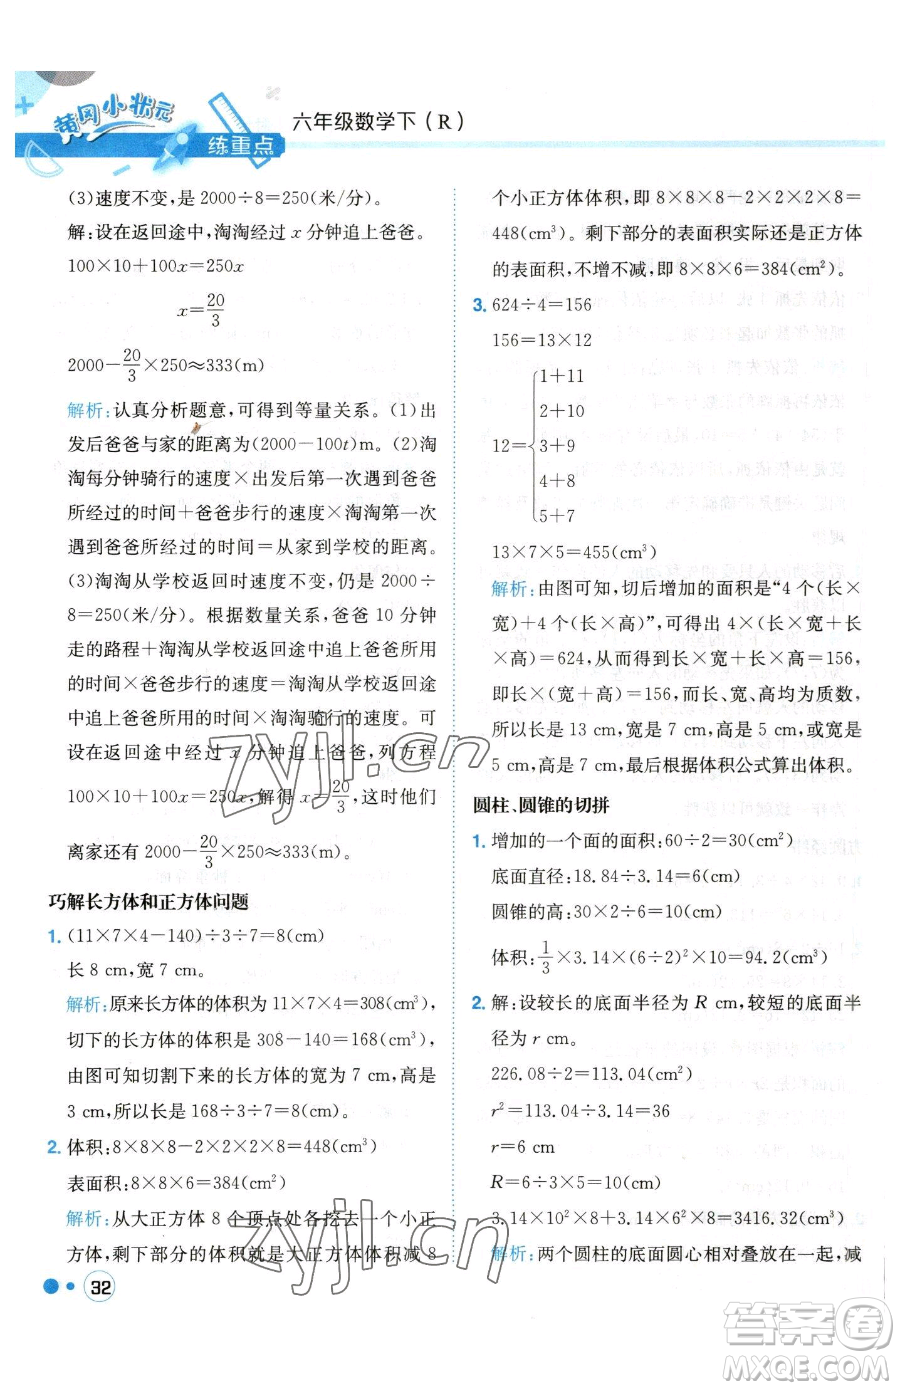 黄冈小状元
练重点
六年级数学下（R）
(3)速度不变，是 2000÷8=250(米/分)。
解：设在返回途中，淘淘经过 x 分钟追上爸爸。
100×10+100x=250x
x=20/3
2000-20/3×250≈333(m)
解析：认真分析题意，可得到等量关系。(1)出
发后爸爸与家的距离为(2000-100t)m。(2)淘
淘每分钟骑行的速度×出发后第一次遇到爸爸
所经过的时间+爸爸步行的速度×淘淘第一次
遇到爸爸所经过的时间=从家到学校的距离。
(3)淘淘从学校返回时速度不变，仍是 2000÷
8=250(米/分)。根据数量关系，爸爸 10 分钟
走的路程+淘淘从学校返回途中追上爸爸所用
的时间×爸爸步行的速度=淘淘从学校返回途
中追上爸爸所用的时间×淘淘骑行的速度。可
设在返回途中经过 x 分钟追上爸爸，列方程
100×10+100x=250x，解得 x=20/3，这时他们
离家还有 2000-20/3×250≈333(m)。
巧解长方体和正方体问题
1. (11×7×4-140)÷3÷7=8(cm)
长 8 cm，宽 7 cm。
解析：原来长方体的体积为 11×7×4=308(cm³)，
切下的长方体的体积是 308-140=168(cm³)，
由图可知切割下来的长方体的宽为 7 cm，高是
3 cm，所以长是 168÷3÷7=8(cm)。
2. 体积：8×8×8-2×2×2×8=448(cm³)
表面积：8×8×6=384(cm²)
解析：从大正方体 8 个顶点处各挖去一个小正
方体，剩下部分的体积就是大正方体体积减 8
32
个小正方体体积，即 8×8×8-2×2×2×8=
448(cm³)。剩下部分的表面积实际还是正方体
的表面积，不增不减，即 8×8×6=384(cm²)。
3. 624÷4=156
156=13×12
12={1+11
2+10
3+9
4+8
5+7
13×7×5=455(cm³)
解析：由图可知，切后增加的面积是“4 个(长×
宽)+4 个(长×高)”，可得出 4×(长×宽+长
×高)=624，从而得到长×宽+长×高=156，
即长×(宽+高)=156，而长、宽、高均为质数，
所以长是 13 cm，宽是 7 cm，高是 5 cm，或宽是
5 cm，高是 7 cm，最后根据体积公式算出体积。
圆柱、圆锥的切拼
1. 增加的一个面的面积：60÷2=30(cm²)
底面直径：18.84÷3.14=6(cm)
圆锥的高：30×2÷6=10(cm)
体积：1/3×3.14×(6÷2)²×10=94.2(cm³)
2. 解：设较长的底面半径为 R cm，较短的底面半
径为 r cm。
226.08÷2=113.04(cm²)
r²=113.04÷3.14=36
r=6 cm
R=6÷3×5=10(cm)
3.14×10²×8+3.14×6²×8=3416.32(cm³)
解析：两个圆柱的底面圆心相对叠放在一起，减
zyjl.cn
zyjl.cn
答案圈
MXQE.COM